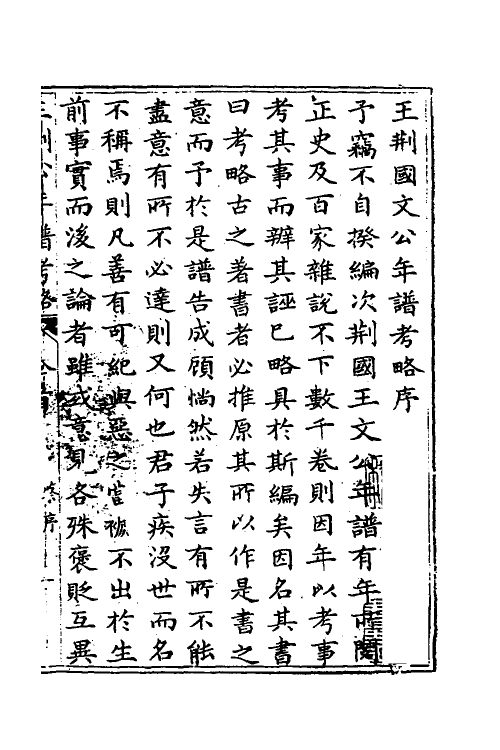 王荆國文公年譜考略序
予竊不自揆編次荆國王文公年譜有年所閱
正史及百家雜說不下數千卷則因年以考事
考其事而辧其誣已略具於斯編矣因名其書
曰考略古之著書者必推原其所以作是書之
意而予於是譜告成顧惝然若失言有所不能
盡意有所不必達則又何也君子疾沒世而名
不稱焉則凡善有可紀與惡之當褫不出於生
前事實而後之論者雖或意見各殊褒貶互異
王荆公年譜考略 序